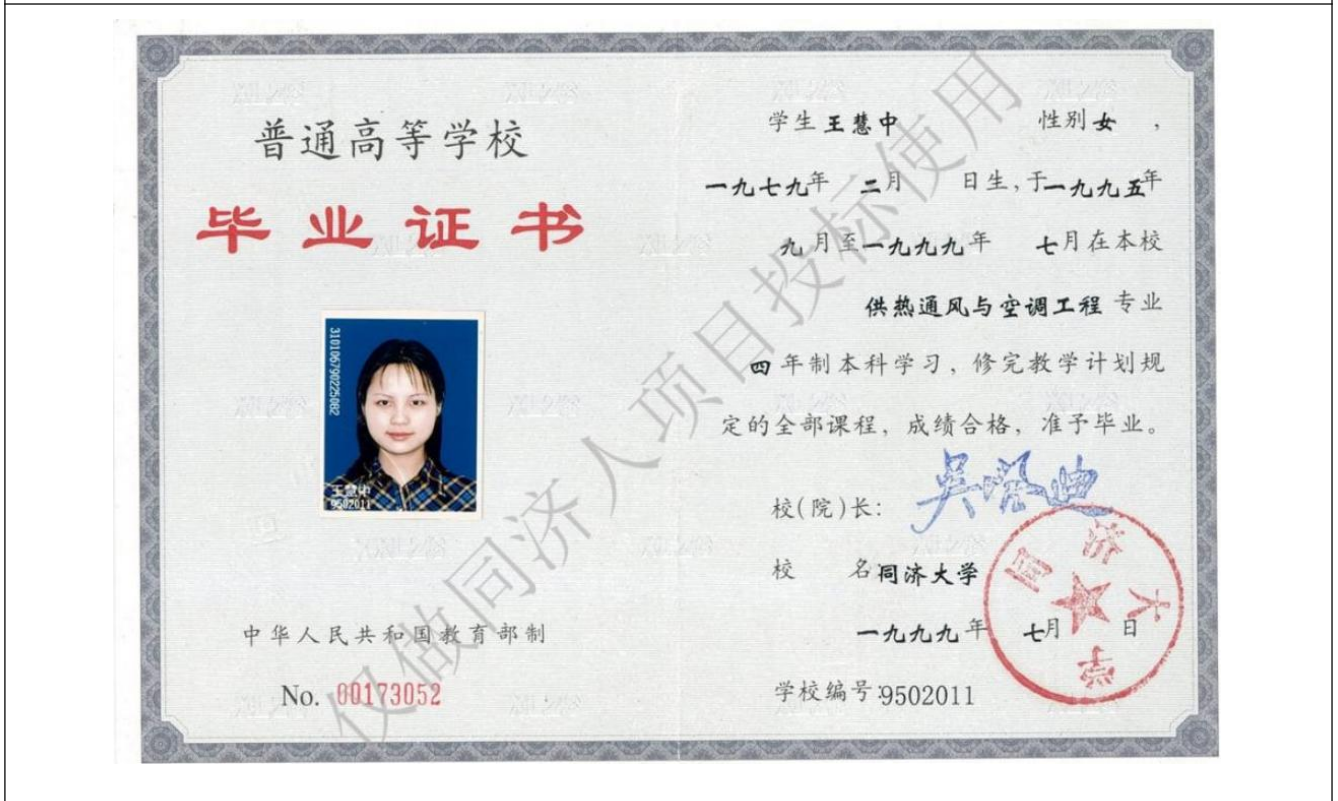 普通高等学校
毕业证书
310106790225082
王慧中
9502011
中华人民共和国教育部制
No. 00173052
学生王慧中 性别女，
一九七九年 二月 日生，于一九九五年
九月至一九九九年 七月在本校
供热通风与空调工程 专业
四年制本科学习，修完教学计划规
定的全部课程，成绩合格，准予毕业。
校(院)长：
吴启迪
校 名 同济大学
一九九九年 七月 日
学校编号:9502011
同济大学
仅做同济人项目投标使用